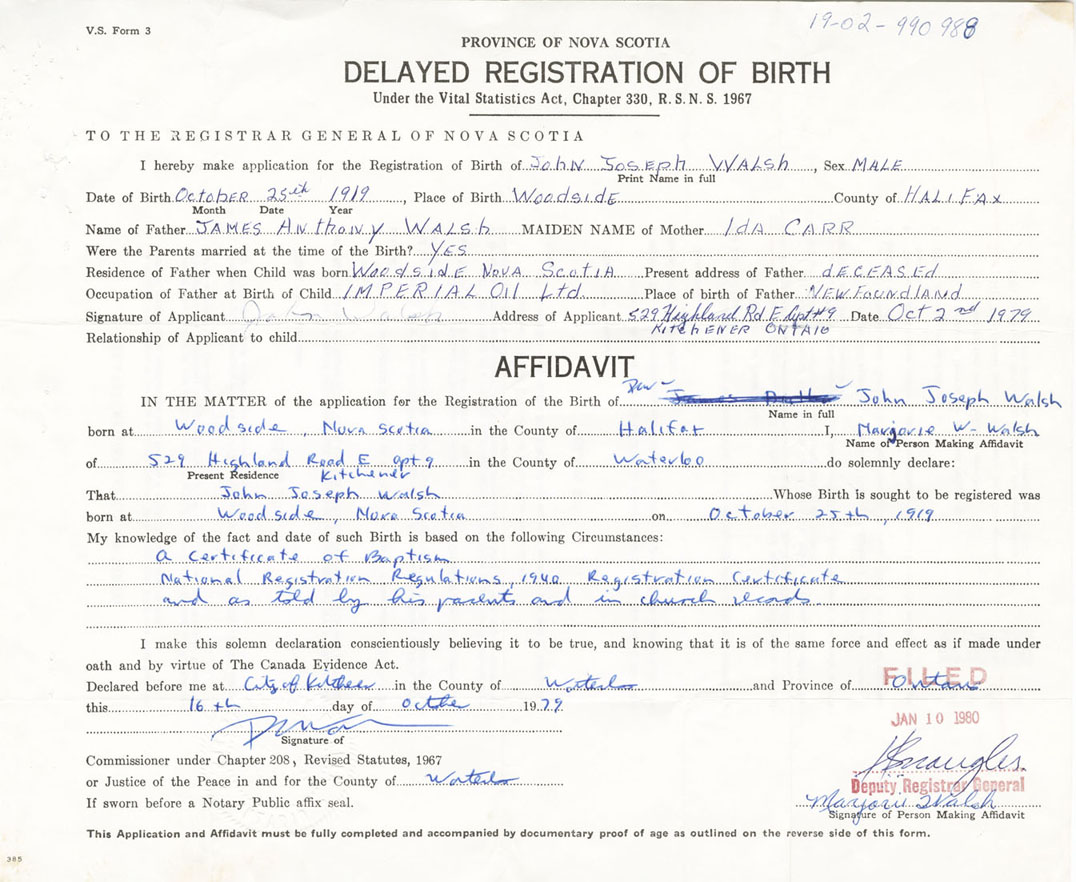 V.S. Form 3
19-02-990988
PROVINCE OF NOVA SCOTIA
DELAYED REGISTRATION OF BIRTH
Under the Vital Statistics Act, Chapter 330, R.S.N.S. 1967
TO THE REGISTRAR GENERAL OF NOVA SCOTIA
I hereby make application for the Registration of Birth of John Joseph WALSH, Sex MALE
Print Name in full
Date of Birth October 25th 1919, Place of Birth Woodside County of HALIFAX
Month Date Year
Name of Father JAMES Anthony WALSH MAIDEN NAME of Mother Ida CARR
Were the Parents married at the time of the Birth? YES
Residence of Father when Child was born Woodside Nova Scotia Present address of Father deceased
Occupation of Father at Birth of Child IMPERIAL Oil Ltd. Place of birth of Father NEWFoundland
Signature of Applicant John Walsh Address of Applicant 529 Highland Rd E Apt #9 Date Oct 2nd 1979
KITCHENER ONTAIO
Relationship of Applicant to child
AFFIDAVIT
IN THE MATTER of the application for the Registration of the Birth of John Joseph Walsh
Name in full
born at Woodside, Nova Scotia in the County of Halifax I, Marjorie W. Walsh
Name of Person Making Affidavit
of 529 Highland Road E apt 9 in the County of Waterloo do solemnly declare:
Present Residence Kitchener
That John Joseph Walsh Whose Birth is sought to be registered was
born at Woodside, Nova Scotia on October 25th, 1919
My knowledge of the fact and date of such Birth is based on the following Circumstances:
a Certificate of Baptism
National Registration Regulations, 1940 Registration Certificate
and as told by his parents and in church records.
I make this solemn declaration conscientiously believing it to be true, and knowing that it is of the same force and effect as if made under
oath and by virtue of The Canada Evidence Act.
Declared before me at City of Kitchener in the County of Waterloo and Province of Ontario
FILED
this 16th day of October 1979
JAN 10 1980
Signature of
Commissioner under Chapter 208, Revised Statutes, 1967
or Justice of the Peace in and for the County of Waterloo
Deputy Registrar General
If sworn before a Notary Public affix seal.
Marjorie Walsh
Signature of Person Making Affidavit
This Application and Affidavit must be fully completed and accompanied by documentary proof of age as outlined on the reverse side of this form.
385